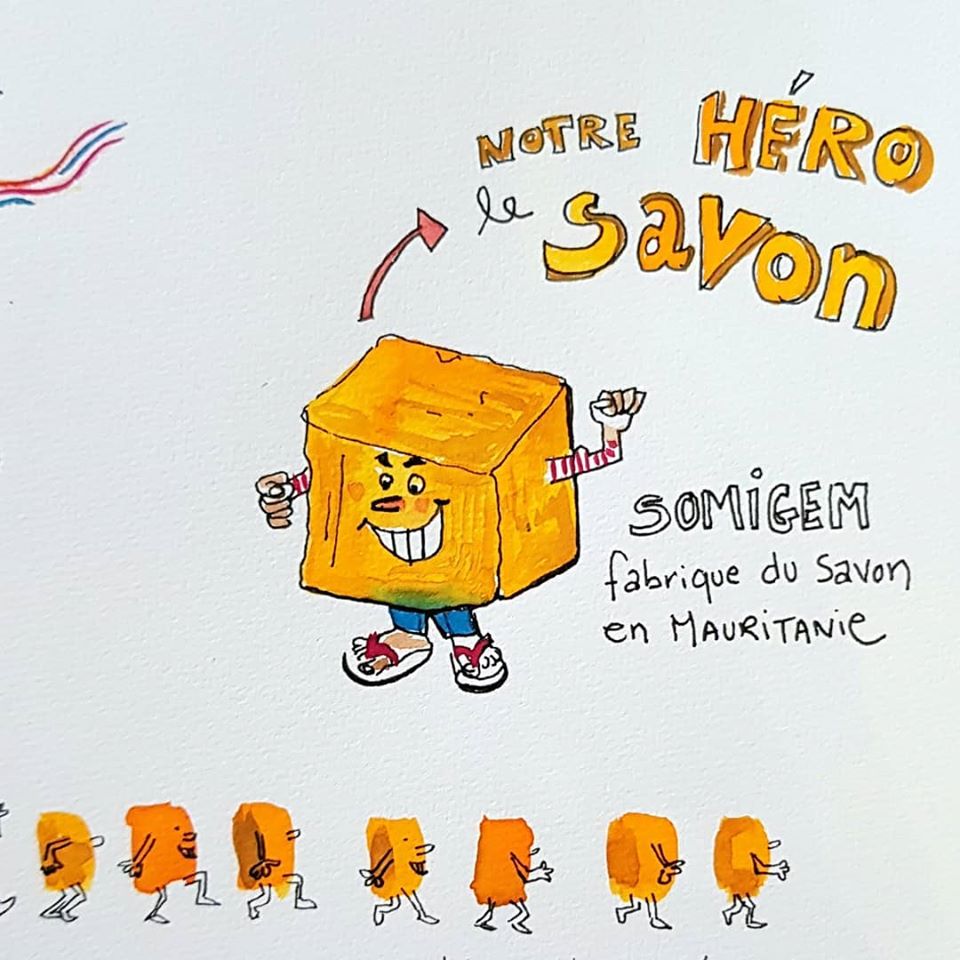 NOTRE HÉRO
le Savon
SOMIGEM
fabrique du Savon
en MAURITANIE